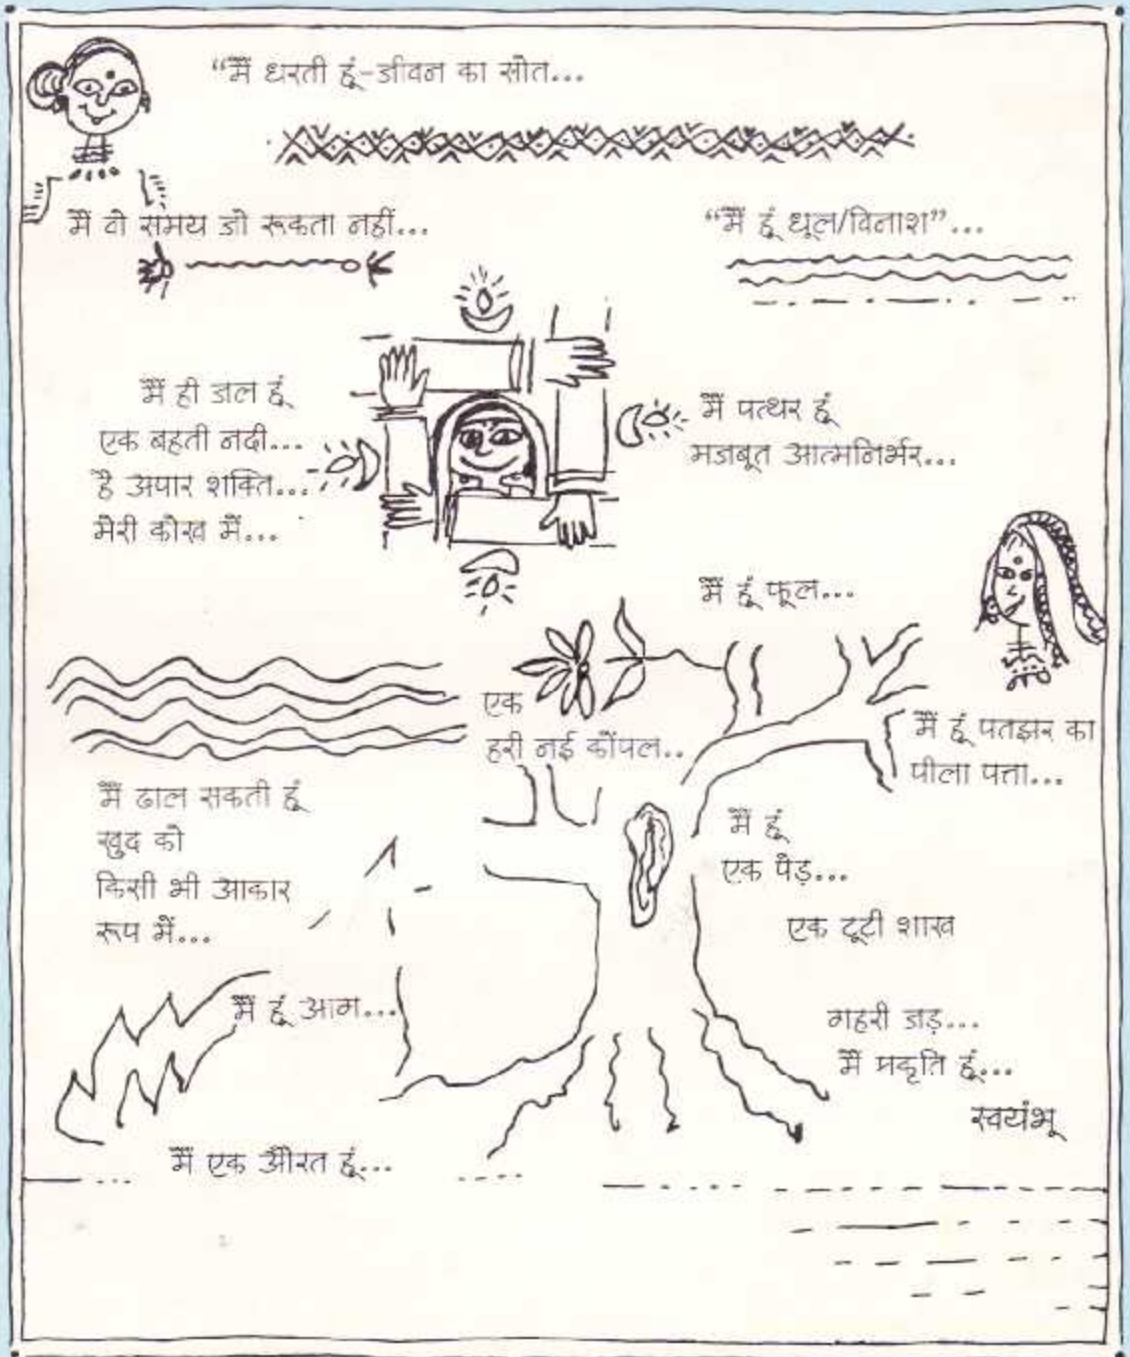 “मैं धरती हूं-जीवन का स्रोत...
मैं वो समय जो रूकता नहीं...
“मैं हूं धूल/विनाश”...
मैं ही जल हूं
एक बहती नदी...
है अपार शक्ति...
मेरी कोख में...
मैं पत्थर हूं
मजबूत आत्मनिर्भर...
मैं हूं फूल...
एक
हरी नई कोंपल..
मैं हूं पतझर का
पीला पत्ता...
मैं ढाल सकती हूं
खुद को
किसी भी आकार
रूप में...
मैं हूं
एक पेड़...
एक टूटी शाख
मैं हूं आग...
गहरी जड़...
मैं प्रकृति हूं...
स्वयंभू
मैं एक औरत हूं...